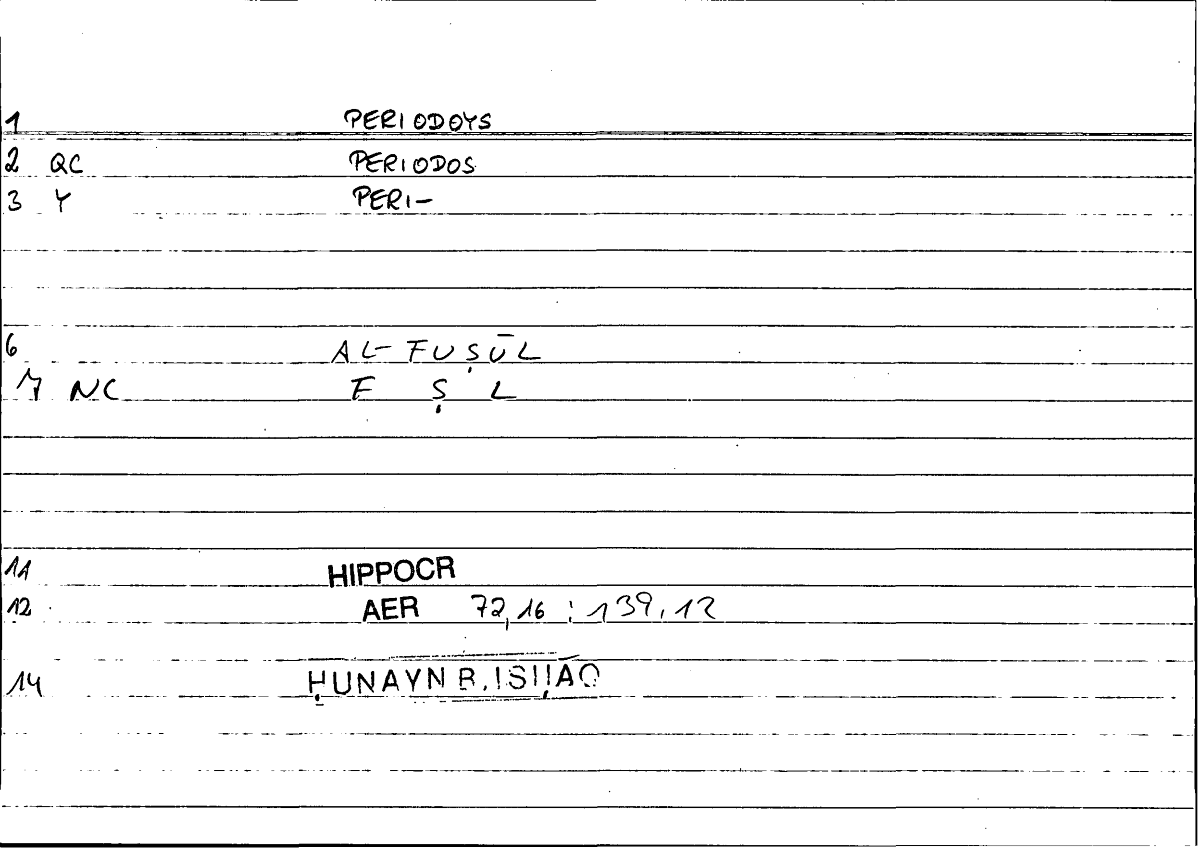 1 PERIODOYS
2 QC PERIODOS
3 Y PERI-
6 AL-FUṢŪL
7 NC F Ṣ L
11 HIPPOCR
12 AER 72,16 : 139,12
14 ḤUNAYN B. ISḤĀQ